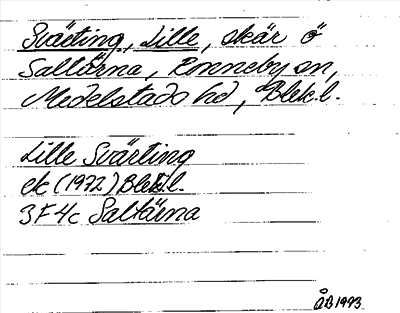 Svärting, Lille, skär ö
Saltärna, Ronneby sn,
Medelstads hd, Blek.l.
Lille Svärting
ek (1972) Blek.l.
3F 4c Saltärna
ÅB 1993